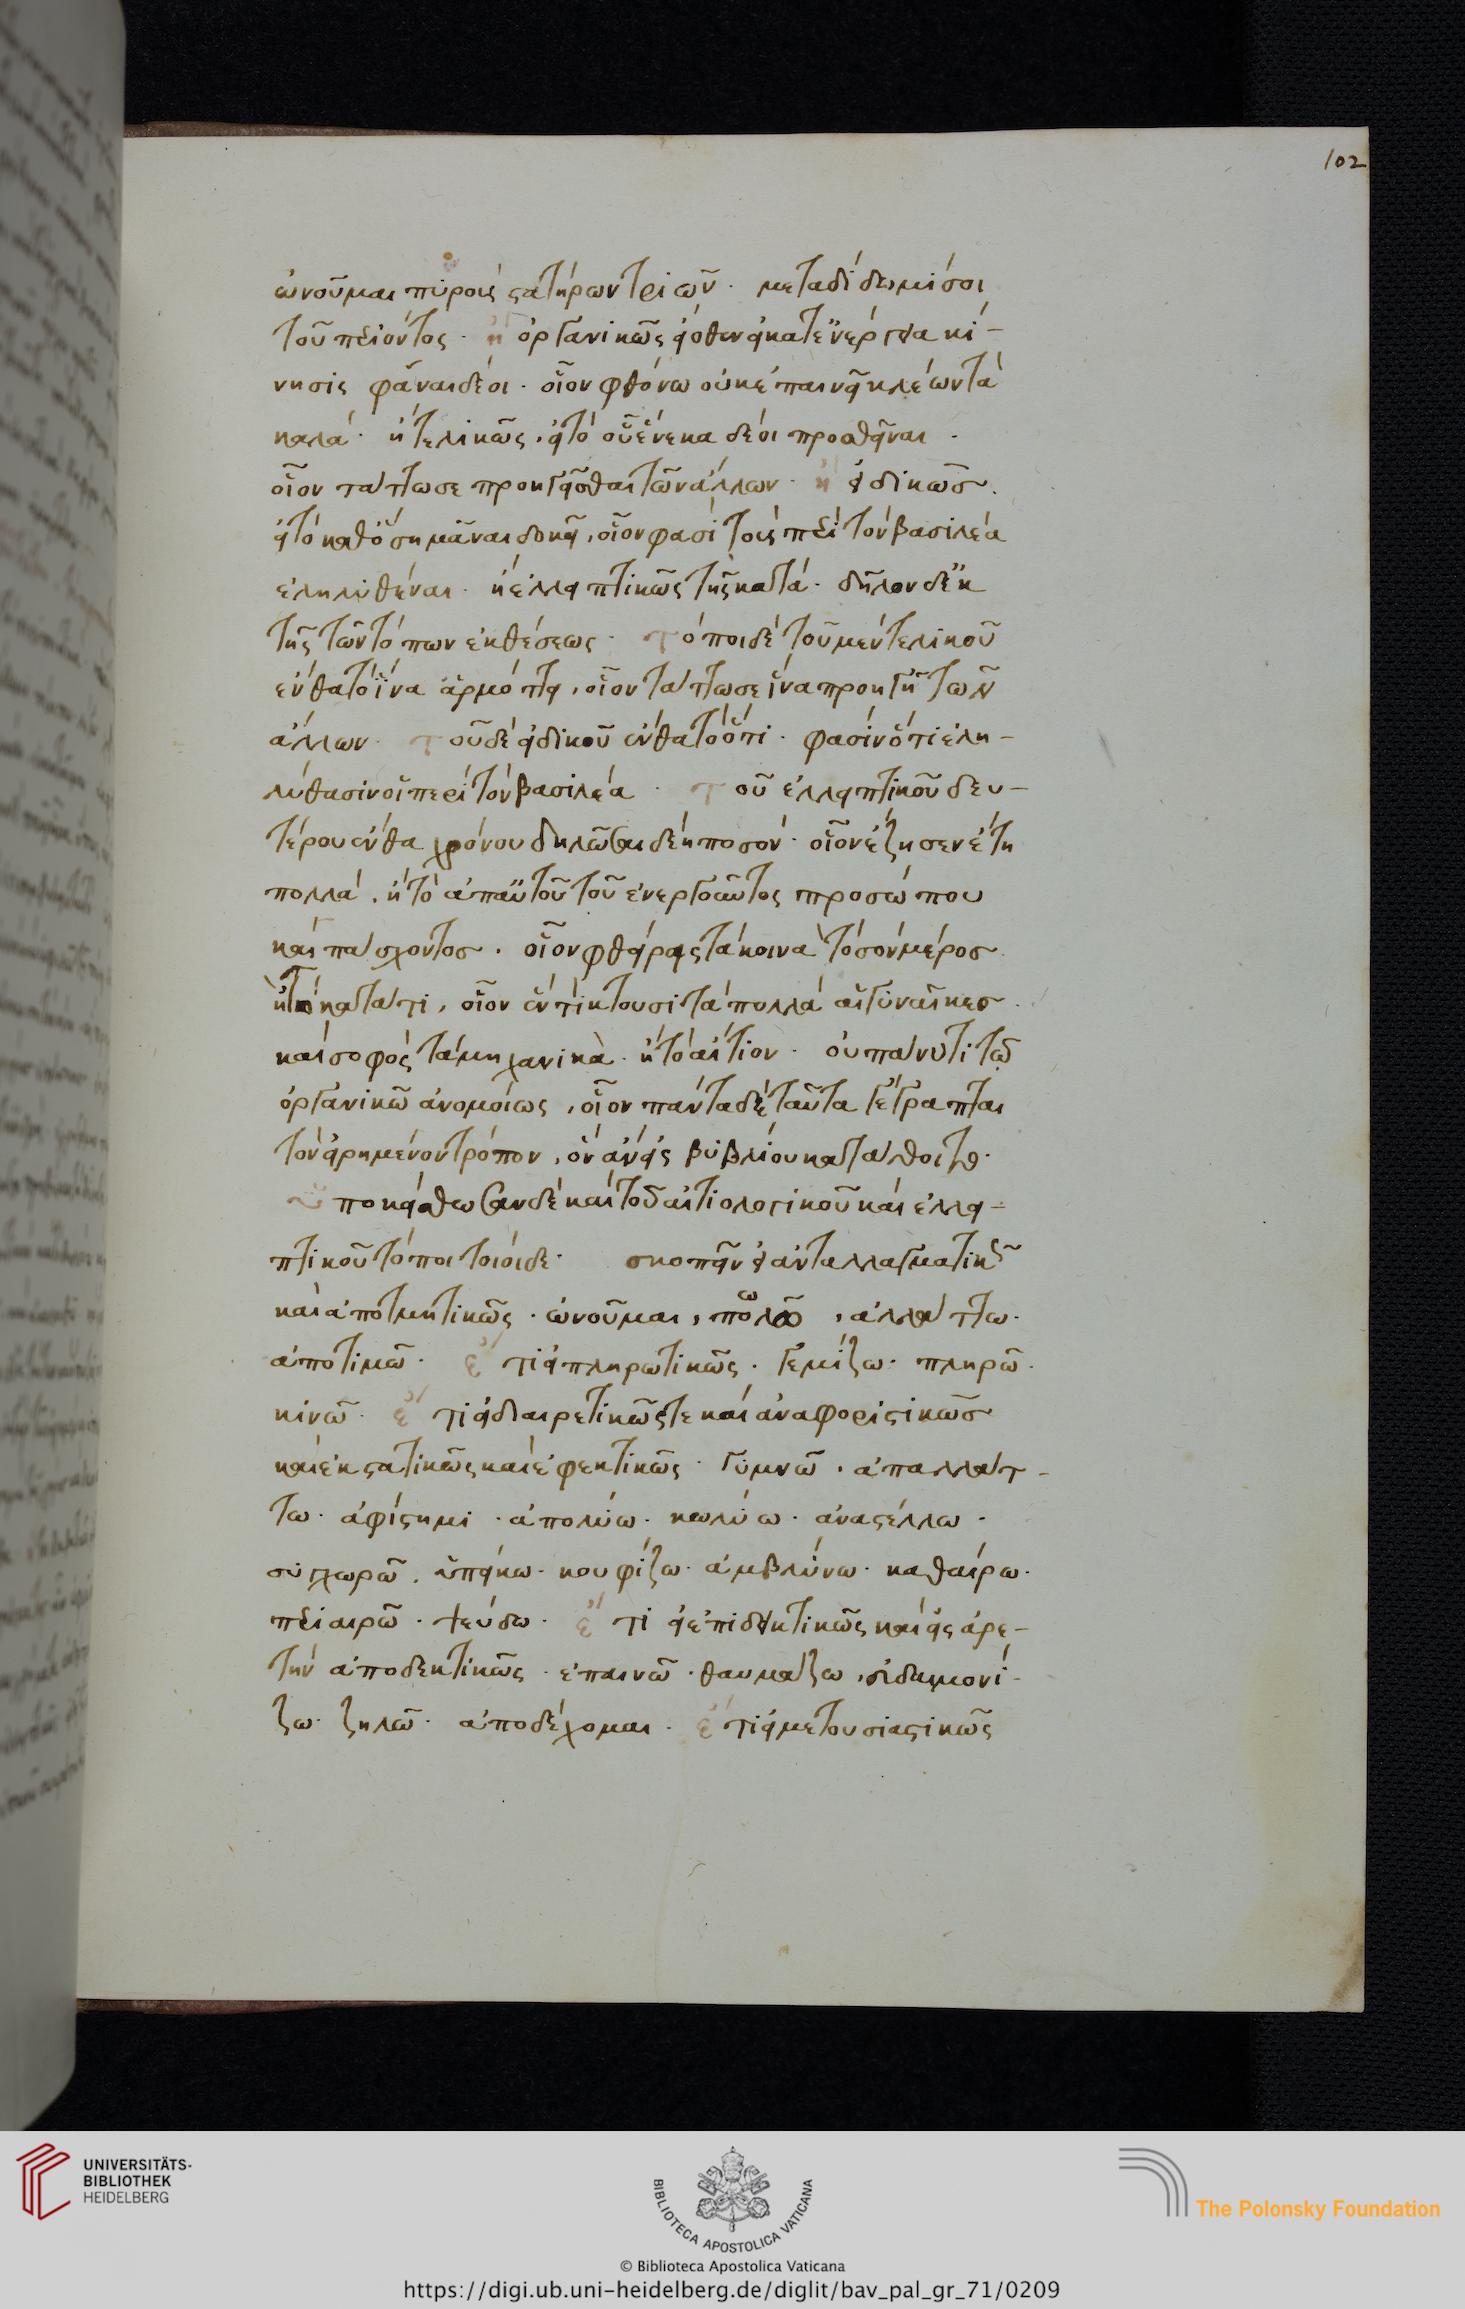 102
ὠνοῦμαι πυροὺς στατήρων τριῶν · μεταδίδωμί σοι
τοῦ περιόντος · ἢ ὀργανικῶς εἰ ὅθεν εἰ κατενέργεια κί-
νησις φᾶναι δέοι · οἷον φθόνω οὐκ ἐπαινεῖ κλέων τὰ
καλά · ἢ τελικῶς · εἰ τὸ οὗ ἕνεκα δέοι προσθεῖναι ·
οἷον τάττω σε προηγεῖσθαι τῶν ἄλλων · ἢ εἰδικῶς ·
εἰ τὸ καθὸ σημᾶναι δοκεῖ, οἷον φασὶ τοὺς περὶ τὸν βασιλέα
ἐληλυθέναι · ἢ ἐλλειπτικῶς τῆς κατά · δῆλον δὲ κ
τῆς τῶν τόπων ἐκθέσεως · τόποι δὲ τοῦ μὲν τελικοῦ
ἔνθα τὸ ἵνα ἁρμόττει, οἷον τάττω σε ἵνα προηγῆ τῶν
ἄλλων · τοῦ δὲ εἰδικοῦ ἔνθα τὸ ὅτι · φασὶν ὅτι ἐλη-
λύθασιν οἱ περὶ τὸν βασιλέα · τοῦ ἐλλειπτικοῦ δευ-
τέρου ἔνθα χρόνου δηλῶσαι δέη ποσόν · οἷον ἔζησεν ἔτη
πολλά, ἢ τὸ ἀπ αὐτοῦ τοῦ ἐνεργοῦντος προσώπου
καὶ πάσχοντος · οἷον φθείρεις τὰ κοινὰ τὸ σὸν μέρος
ἢ τὸ κατά τι, οἷον εὖ τίκτουσι τὰ πολλὰ αἱ γυναῖκες ·
καὶ σοφὸς τὰ μηχανικὰ · ἢ τὸ αἴτιον · οὐ πάνυ τι τῶ
ὀργανικῶ ἀνομοίως, οἷον πάντα δὲ ταῦτα γέγραπται
τὸν εἰρημένον τρόπον, ὃν ἂν εἰς βυβλίου κατάθοιτο ·
ὑποκείσθωσαν δὲ καὶ τοῦ αἰτιολογικοῦ καὶ ἐλλει-
πτικοῦ τόποι τοιοίδε · σκοπεῖν εἰ ἀνταλλαγματικῶς
καὶ ἀποτμητικῶς · ὠνοῦμαι, πωλῶ, ἀλλάττω ·
ἀποτιμῶ · ἔτι εἰ πληρωτικῶς · γεμίζω · πληρῶ ·
κινῶ · ἔτι εἰ διαιρετικῶς τε καὶ ἀναφοριστικῶς
καὶ ἐκστατικῶς καὶ ἐφεκτικῶς · γυμνῶ · ἀπαλλάτ-
τω · ἀφίστημι · ἀπολύω · κωλύω · ἀναστέλλω ·
συγχωρῶ · ὑπείκω · κουφίζω · ἀμβλύνω · καθαίρω ·
περιαιρῶ · ψεύδω · ἔτι εἰ ἐπιδεικτικῶς καὶ εἰς ἀρε-
τὴν ἀποδεκτικῶς · ἐπαινῶ · θαυμάζω · εὐδαιμονί-
ζω · ζηλῶ · ἀποδέχομαι · ἔτι εἰ μετουσιαστικῶς
UNIVERSITÄTS-
BIBLIOTHEK
HEIDELBERG
BIBLIOTECA APOSTOLICA VATICANA
The Polonsky Foundation
© Biblioteca Apostolica Vaticana
https://digi.ub.uni-heidelberg.de/diglit/bav_pal_gr_71/0209